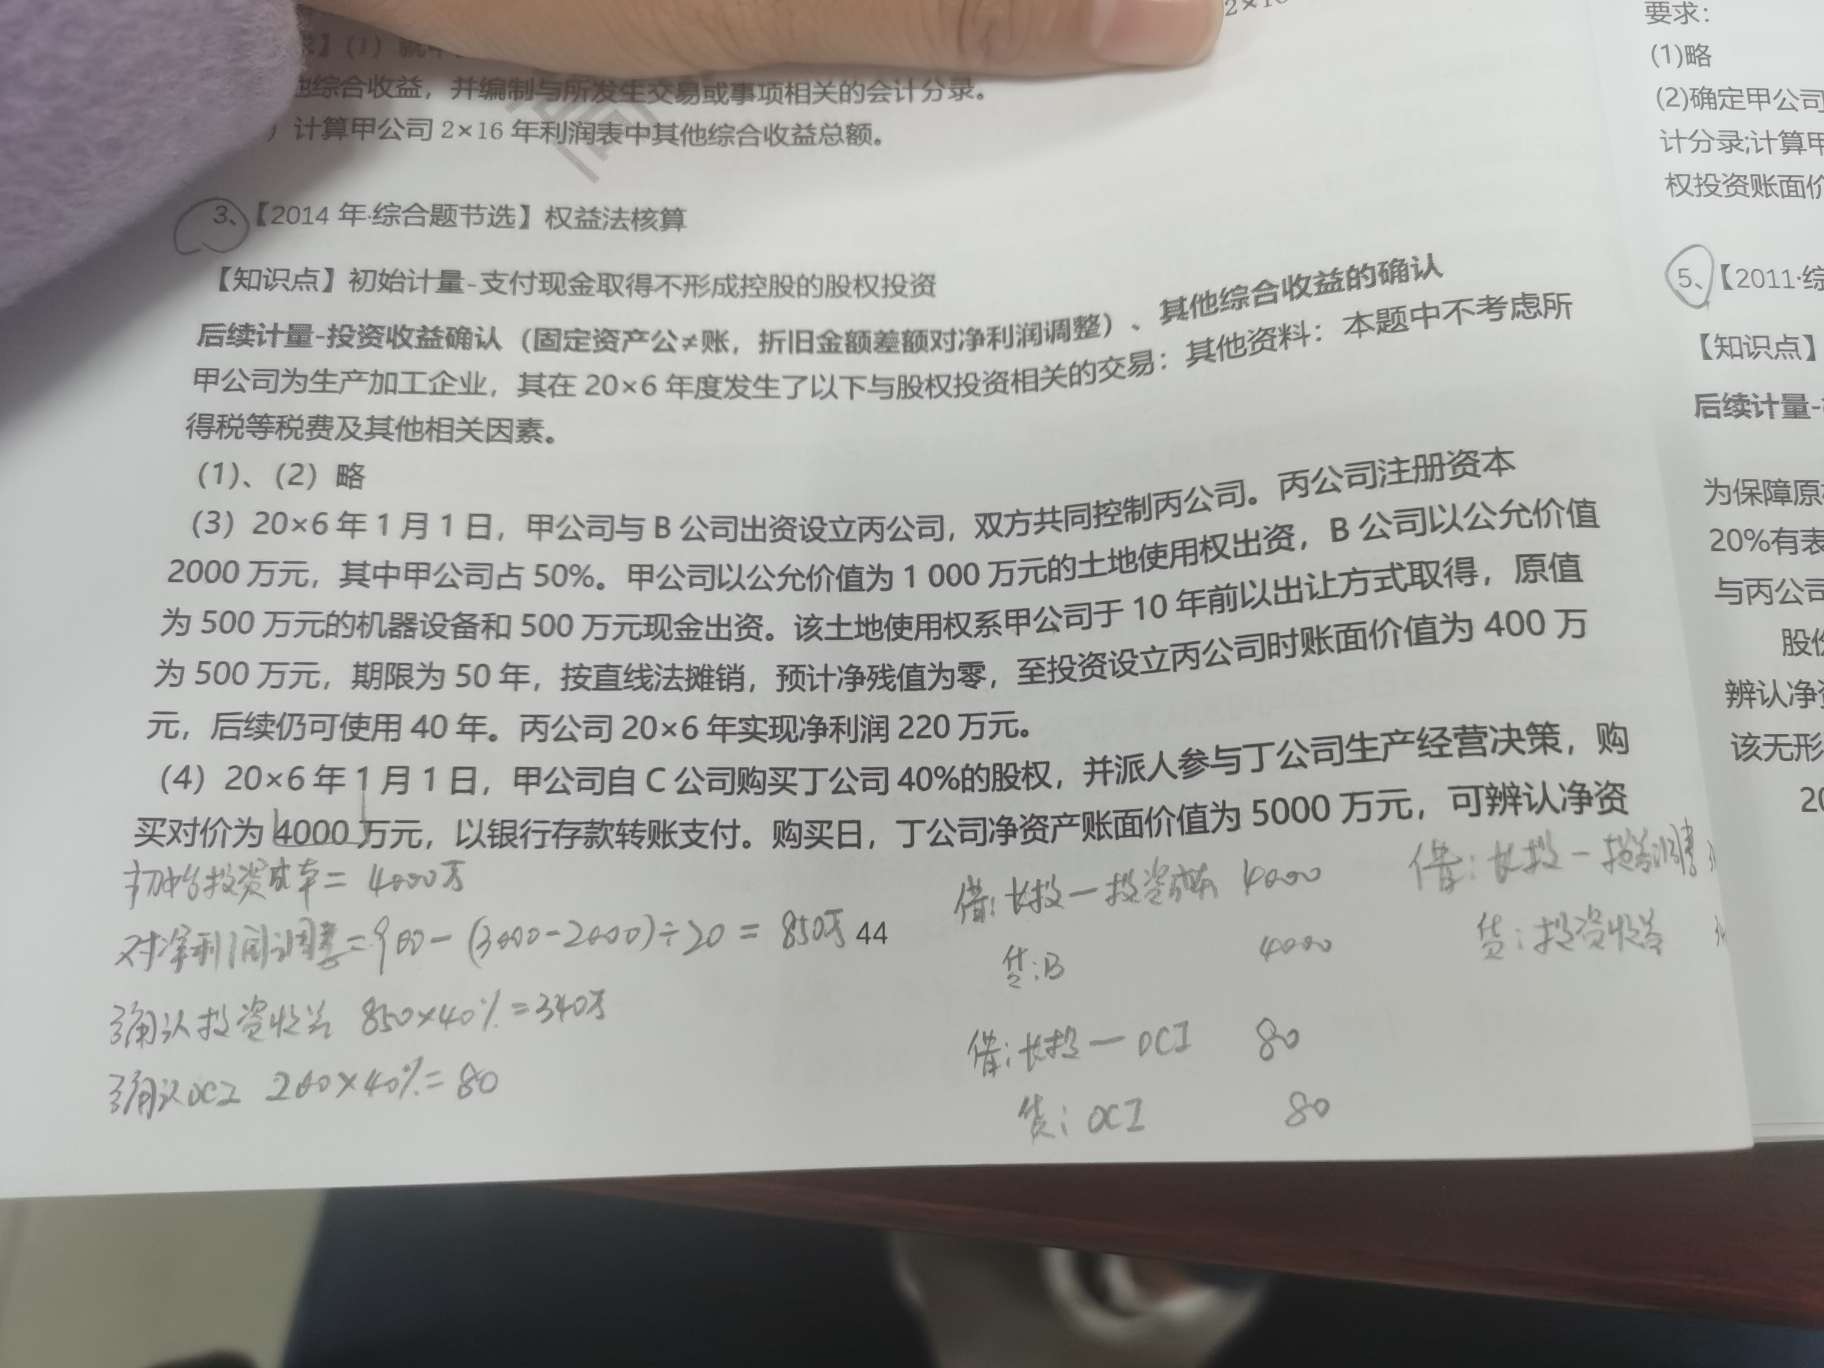 2×16
求】(1) 就
他综合收益，并编制与所发生交易或事项相关的会计分录。
）计算甲公司 2×16 年利润表中其他综合收益总额。
3、【2014 年·综合题节选】权益法核算
【知识点】初始计量-支付现金取得不形成控股的股权投资
后续计量-投资收益确认（固定资产公≠账，折旧金额差额对净利润调整）、其他综合收益的确认
甲公司为生产加工企业，其在 20×6 年度发生了以下与股权投资相关的交易：其他资料：本题中不考虑所
得税等税费及其他相关因素。
（1）、（2）略
（3）20×6 年 1 月 1 日，甲公司与 B 公司出资设立丙公司，双方共同控制丙公司。丙公司注册资本
2000 万元，其中甲公司占 50%。甲公司以公允价值为 1 000 万元的土地使用权出资，B 公司以公允价值
为 500 万元的机器设备和 500 万元现金出资。该土地使用权系甲公司于 10 年前以出让方式取得，原值
为 500 万元，期限为 50 年，按直线法摊销，预计净残值为零，至投资设立丙公司时账面价值为 400 万
元，后续仍可使用 40 年。丙公司 20×6 年实现净利润 220 万元。
（4）20×6 年 1 月 1 日，甲公司自 C 公司购买丁公司 40%的股权，并派人参与丁公司生产经营决策，购
买对价为 4000 万元，以银行存款转账支付。购买日，丁公司净资产账面价值为 5000 万元，可辨认净资
初始投资成本＝ 4000万
对净利润调整＝900－(3000-2000)÷20 ＝ 850万
44
确认投资收益 850×40%＝340万
确认OCI 200×40%＝80
借：长投－投资成本 4000
贷：B 4000
借：长投－OCI 80
贷：OCI 80
借：长投－损益调整
贷：投资收益
要求：
(1)略
(2)确定甲公司
计分录;计算甲
权投资账面价
5、【2011·综
【知识点】
后续计量-
为保障原
20%有表
与丙公司
股份
辨认净资
该无形
20